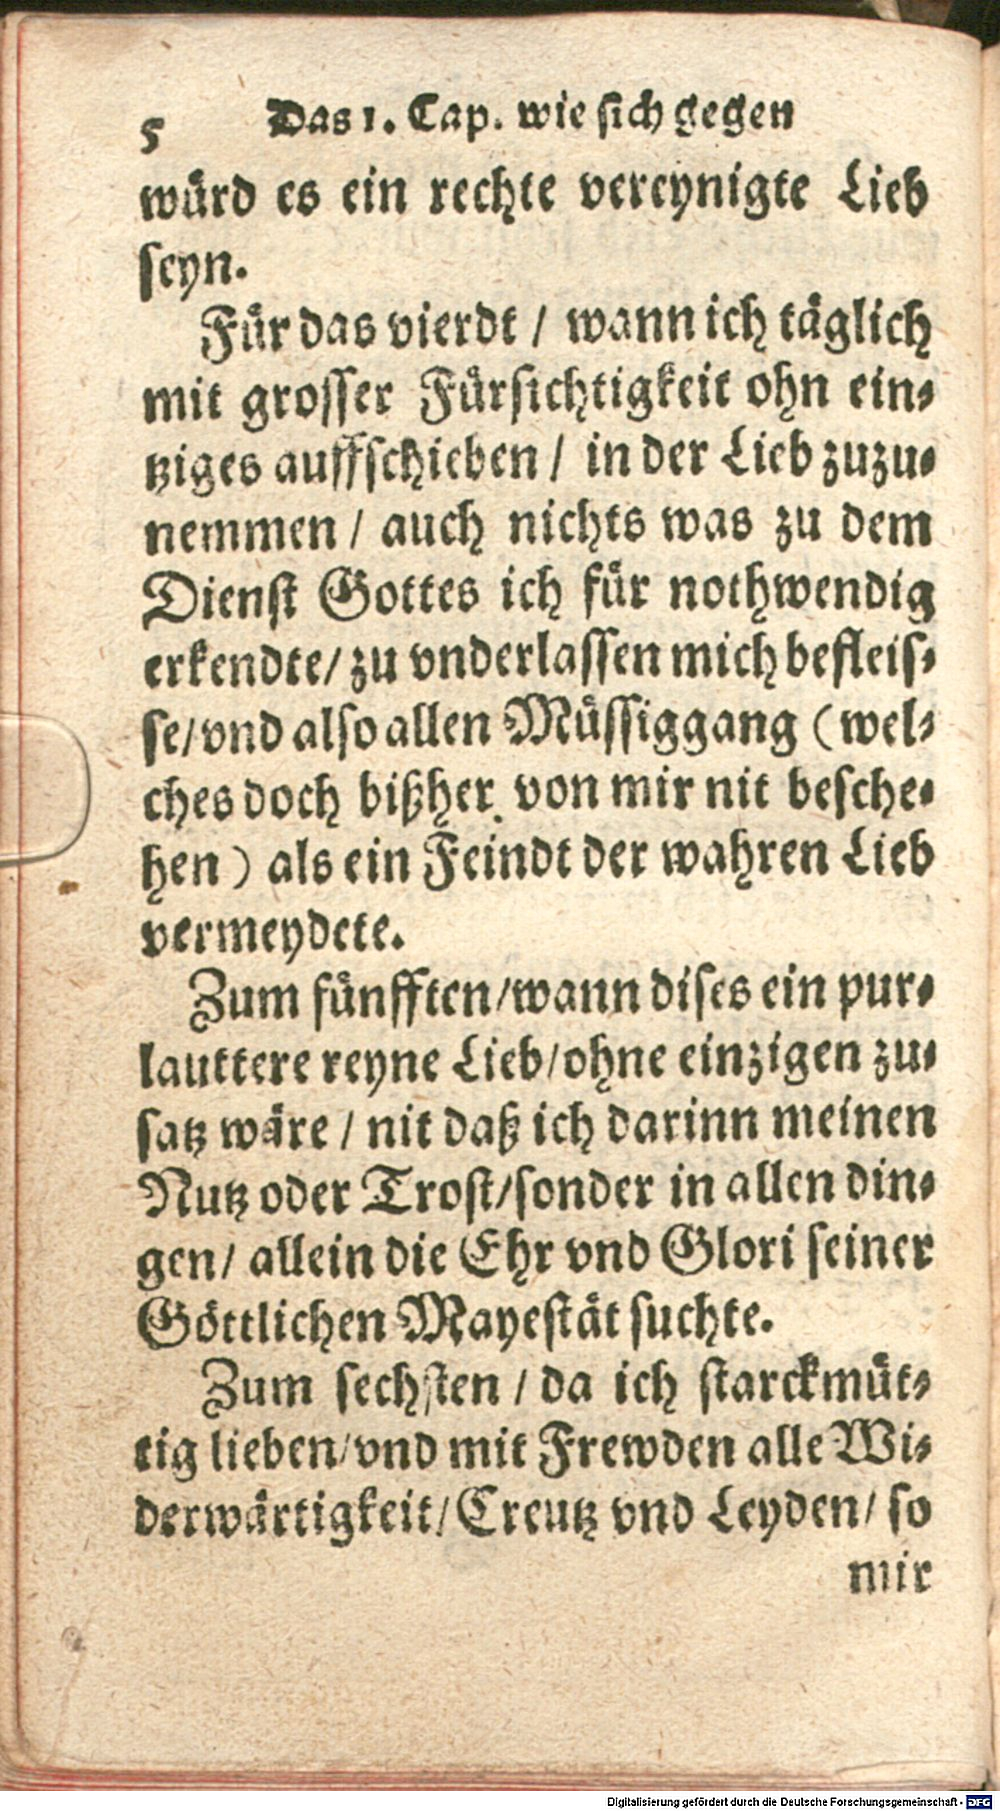 5 Das 1. Cap. wie sich gegen
würd es ein rechte vereynigte Lieb
seyn.
Für das vierdt / wann ich täglich
mit grosser Fürsichtigkeit ohn ein-
tziges auffschieben / in der Lieb zuzu-
nemmen / auch nichts was zu dem
Dienst Gottes ich für nothwendig
erkendte/ zu vnderlassen mich befleis-
se/ vnd also allen Müssiggang (wel-
ches doch bißher von mir nit besche-
hen) als ein Feindt der wahren Lieb
vermeydete.
Zum fünfften/ wann dises ein pur-
lauttere reyne Lieb/ ohne einzigen zu-
satz wäre / nit daß ich darinn meinen
Nutz oder Trost/ sonder in allen din-
gen/ allein die Ehr vnd Glori seiner
Göttlichen Mayestät suchte.
Zum sechsten / da ich starckmüt-
tig lieben/ vnd mit Frewden alle Wi-
derwärtigkeit/ Creutz vnd Leyden/ so
mir
Digitalisierung gefördert durch die Deutsche Forschungsgemeinschaft - DFG